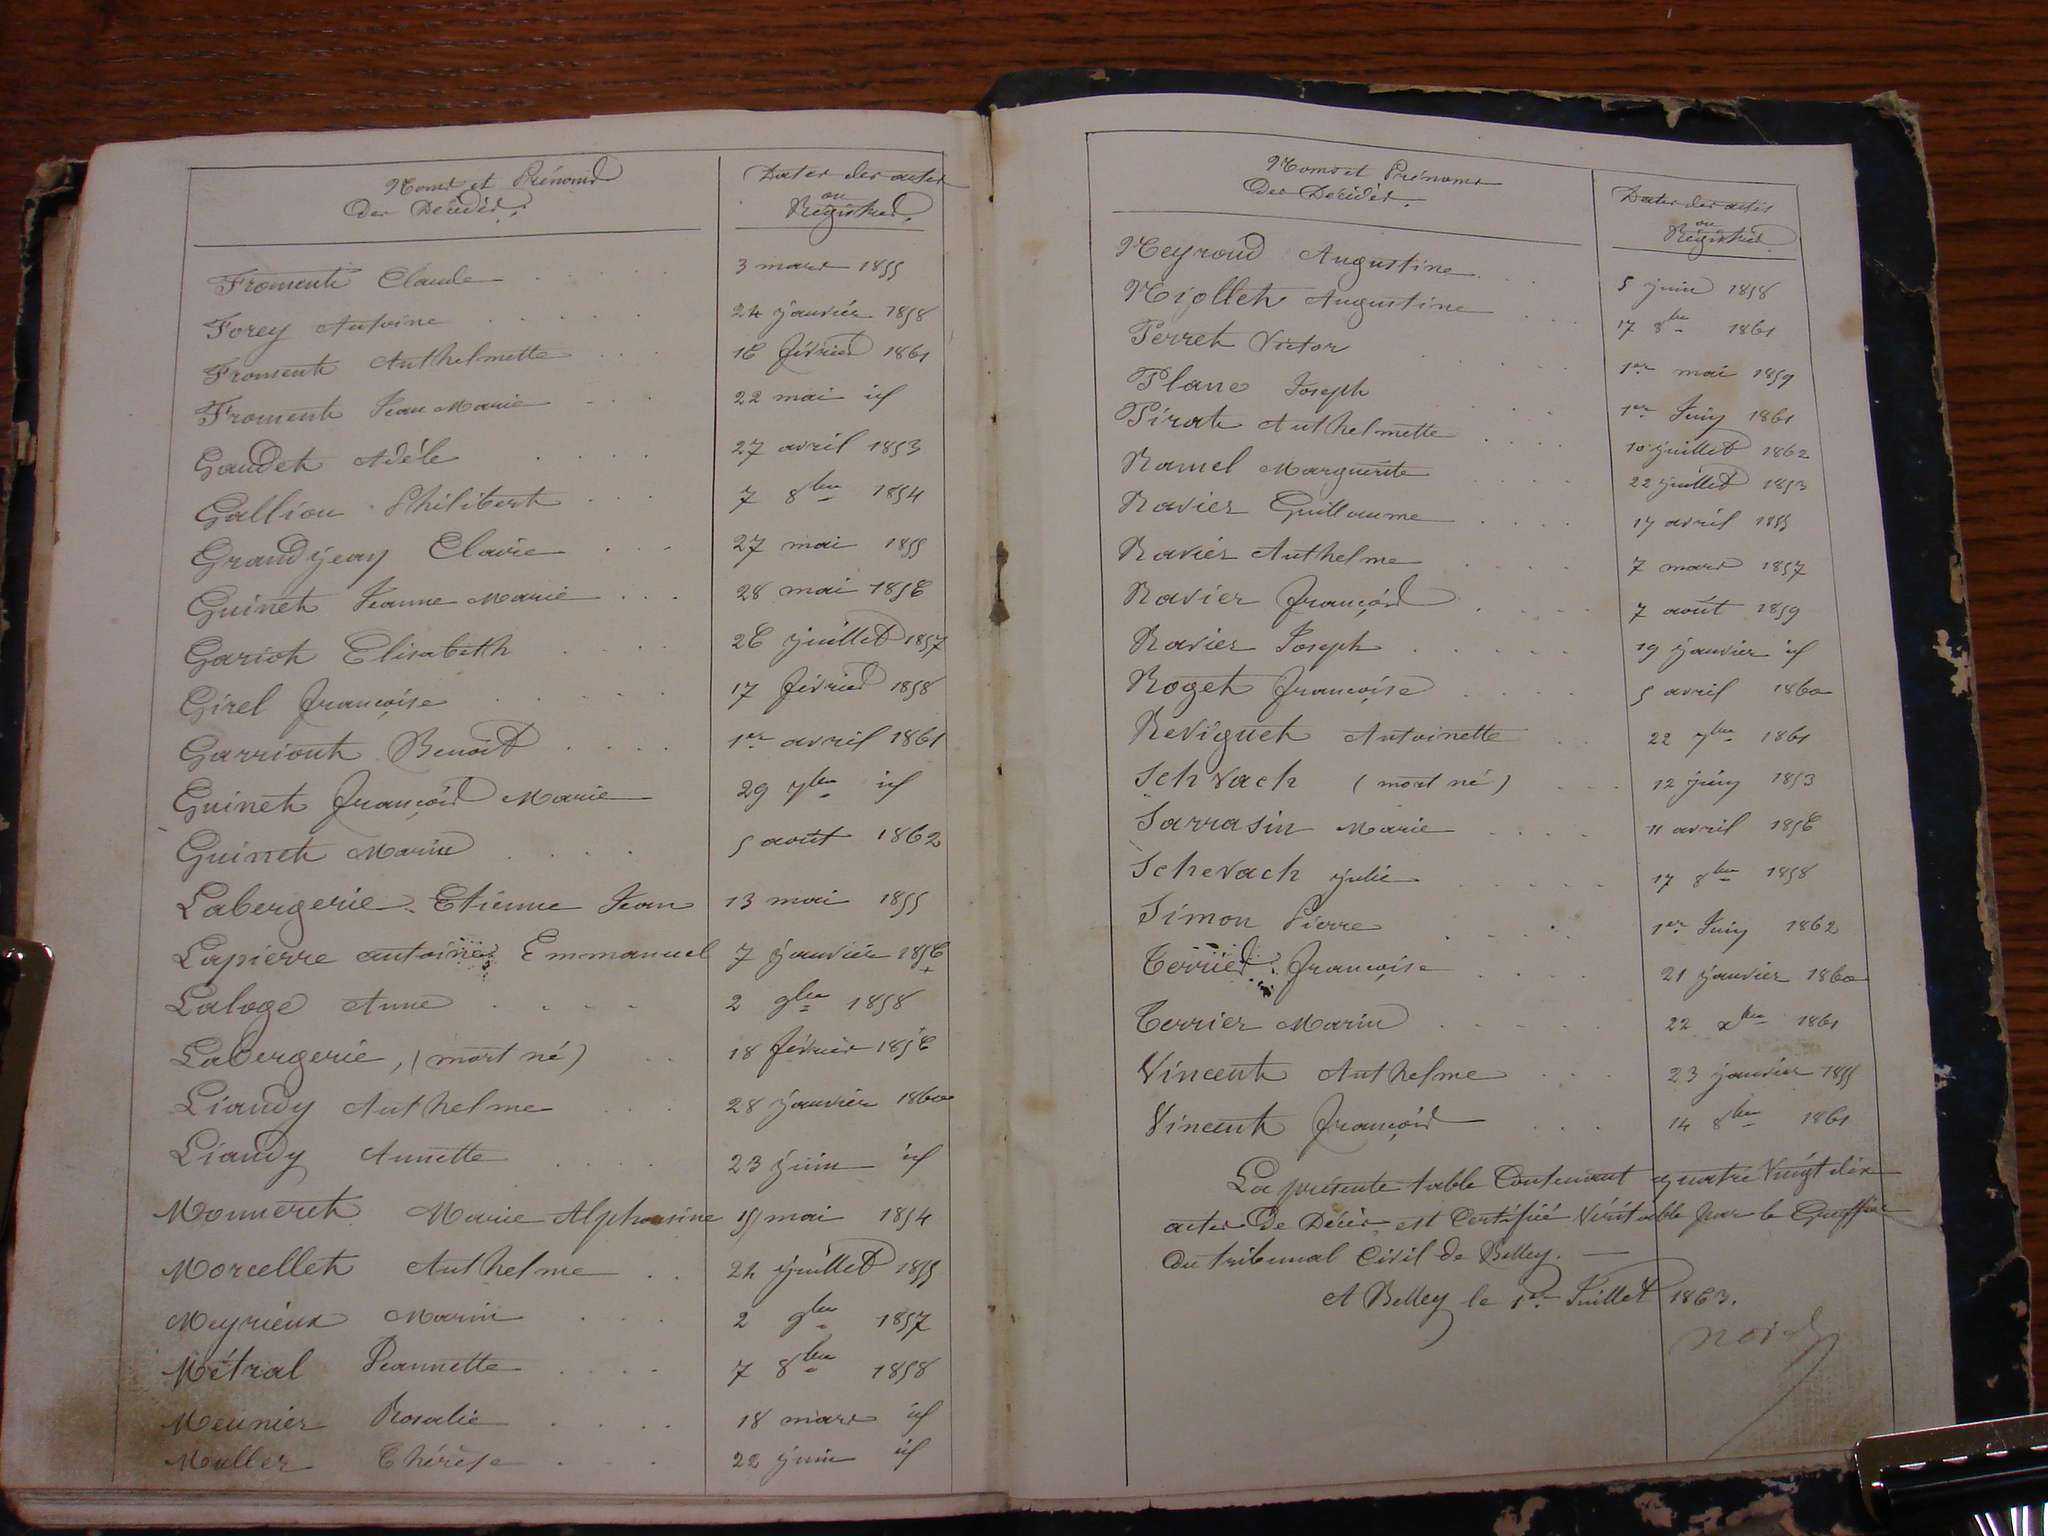 Noms et Prénoms
Des Décédés.
Dates des actes
ou
Registres.
Froment Claude 3 mars 1855
Forey Antoine 24 janvier 1858
Froment Anthelmette 16 février 1861
Froment Jean Marie 22 mai id
Gaudet Adèle 27 avril 1853
Gallion Philibert 7 8bre 1854
Grandjean Clavie 27 mai 1855
Guinet Jeanne Marie 28 mai 1856
Gariot Elisabeth 26 juillet 1857
Girel Françoise 17 février 1858
Garriout Benoit 1er avril 1861
Guinet François Marie 29 7bre id
Guinet Marie 5 août 1862
Labergerie Etienne Jean 13 mai 1855
Lapierre antoine Emmanuel 7 janvier 1856
Laloge Anne 2 9bre 1858
Labergerie, (mort né) 18 février 1856
Liaudy Anthelme 28 janvier 1860
Liaudy Annette 23 juin id
Monneret Marie Alphonsine 15 mai 1854
Morcellet Anthelme 24 juillet 1855
Meyrieux Marin 2 9bre 1857
Métral Jeannette 7 8bre 1858
Meunier Rosalie 18 mars id
Muller Thérèse 22 juin id
Noms et Prénoms
Des Décédés.
Dates des actes
ou
Registres.
Neyroud Augustine 5 juin 1858
Niollet Augustine 17 8bre 1861
Perret Victor 1er mai 1859
Plane Joseph 1er Juin 1861
Pirat Anthelmette 10 juillet 1862
Ramel Marguerite 22 juillet 1853
Ravier Guillaume 17 avril 1855
Ravier Anthelme 7 mars 1857
Ravier François 7 août 1859
Ravier Joseph 19 janvier id
Roget Françoise 5 avril 1860
Reviguet Antoinette 22 7bre 1861
Schvach (mort né) 12 juin 1853
Sarrasin Marie 11 avril 1856
Schevach julie 17 8bre 1858
Simon Pierre 1er Juin 1862
Terrier Françoise 21 janvier 1860
Terrier Marin 22 xbre 1861
Vincent Anthelme 23 janvier 1855
Vincent François 14 8bre 1861
La présente table Contenant quatre Vingt dix
actes de Décès est Certifiée Véritable par le Greffier
du tribunal Civil de Belley.
A Belley le 1er Juillet 1863.